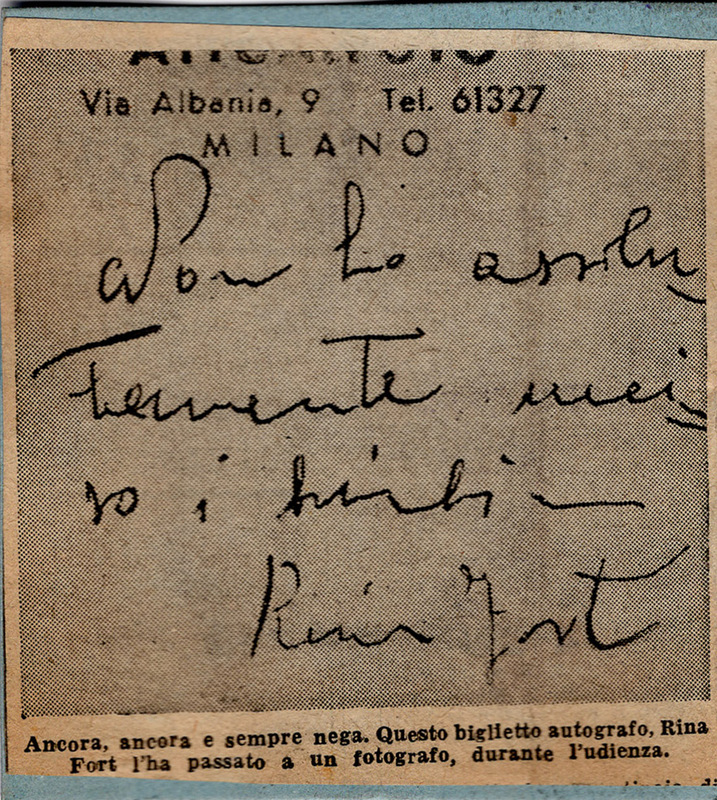 Via Albania, 9 Tel. 61327
MILANO
Non ho assolu-
tamente ucci-
so i bimbi -
Rina Fort
Ancora, ancora e sempre nega. Questo biglietto autografo, Rina
Fort l'ha passato a un fotografo, durante l'udienza.